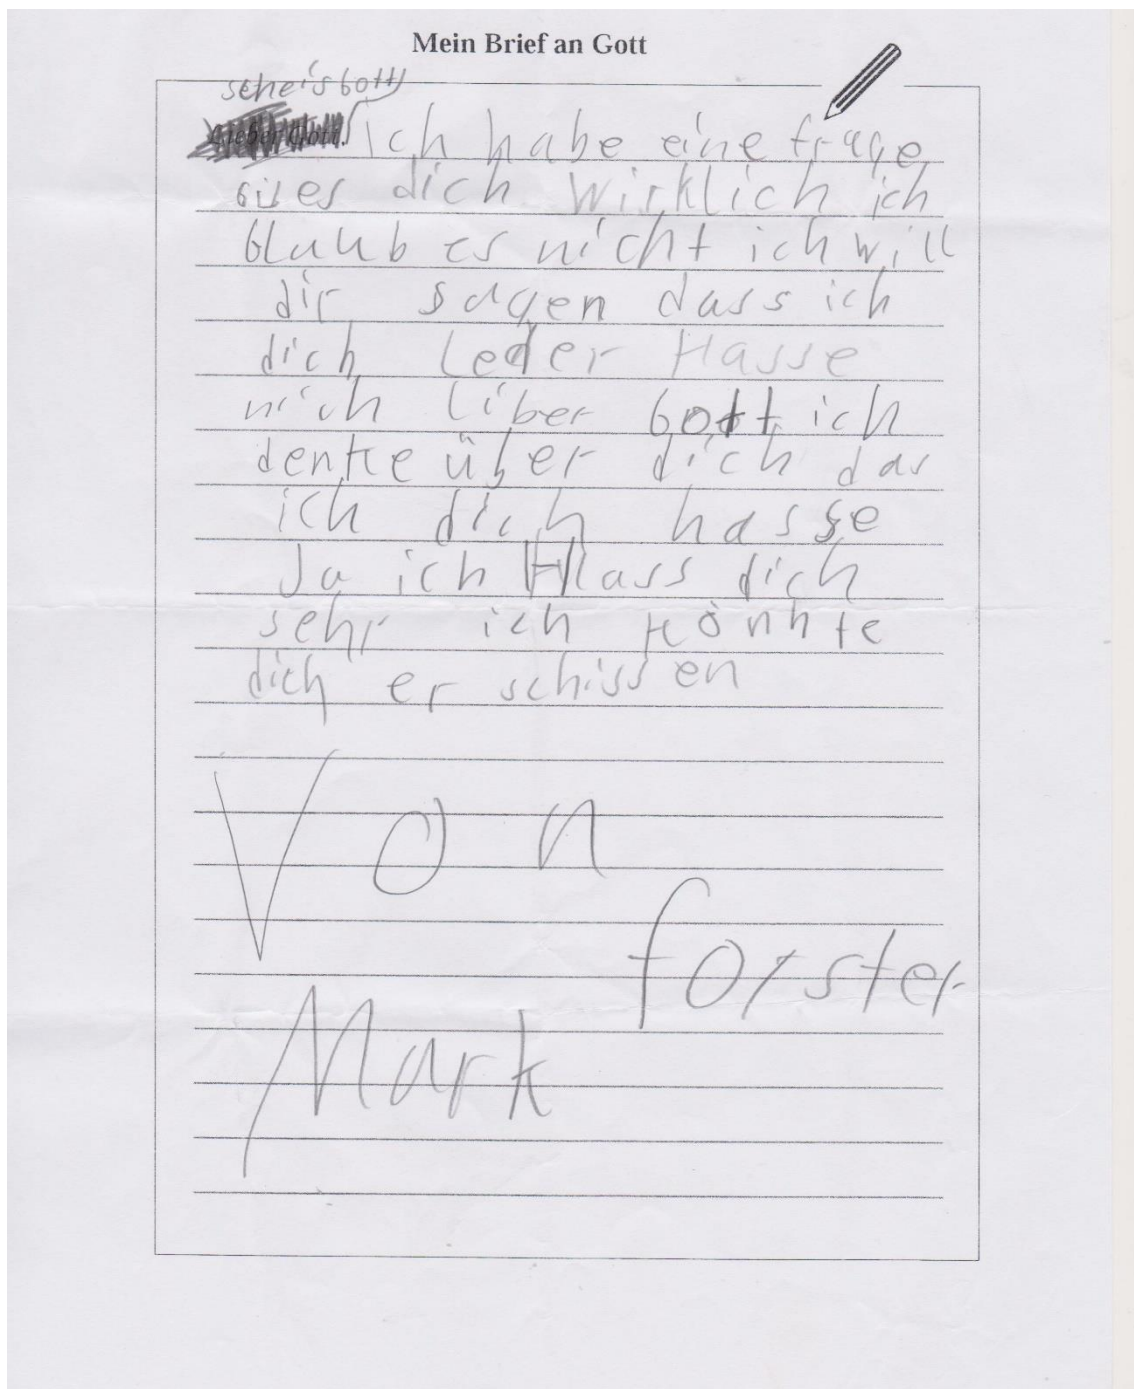 Mein Brief an Gott
scheisGott
Lieber Gott, ich habe eine frage
Gis es dich wirklich ich
Glaub es nicht ich will
dir sagen dass ich
dich Leder Hasse
nich liber Gott ich
denke über dich das
ich dich hasse
Ja ich Hass dich
sehr ich könnte
dich er schissen
Von
forster
Mark